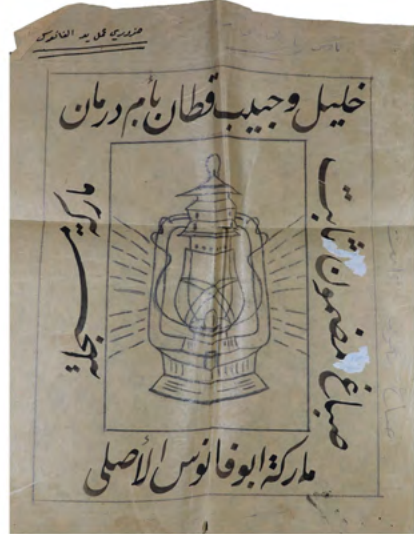 خليل وحبيب قطان بأم درمان
صباغ مضمون ثابت
ماركة مسجلة
ماركة ابو فانوس الأصلي